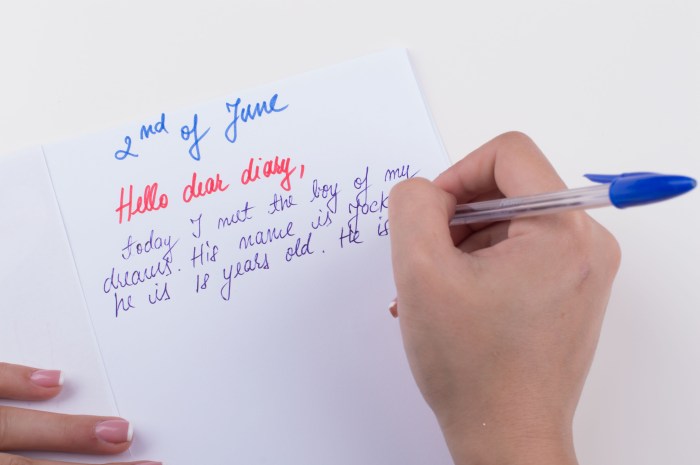 2nd of June
Hello dear diary,
Today I met the boy of my
dreams. His name is Jock
he is 18 years old. He is